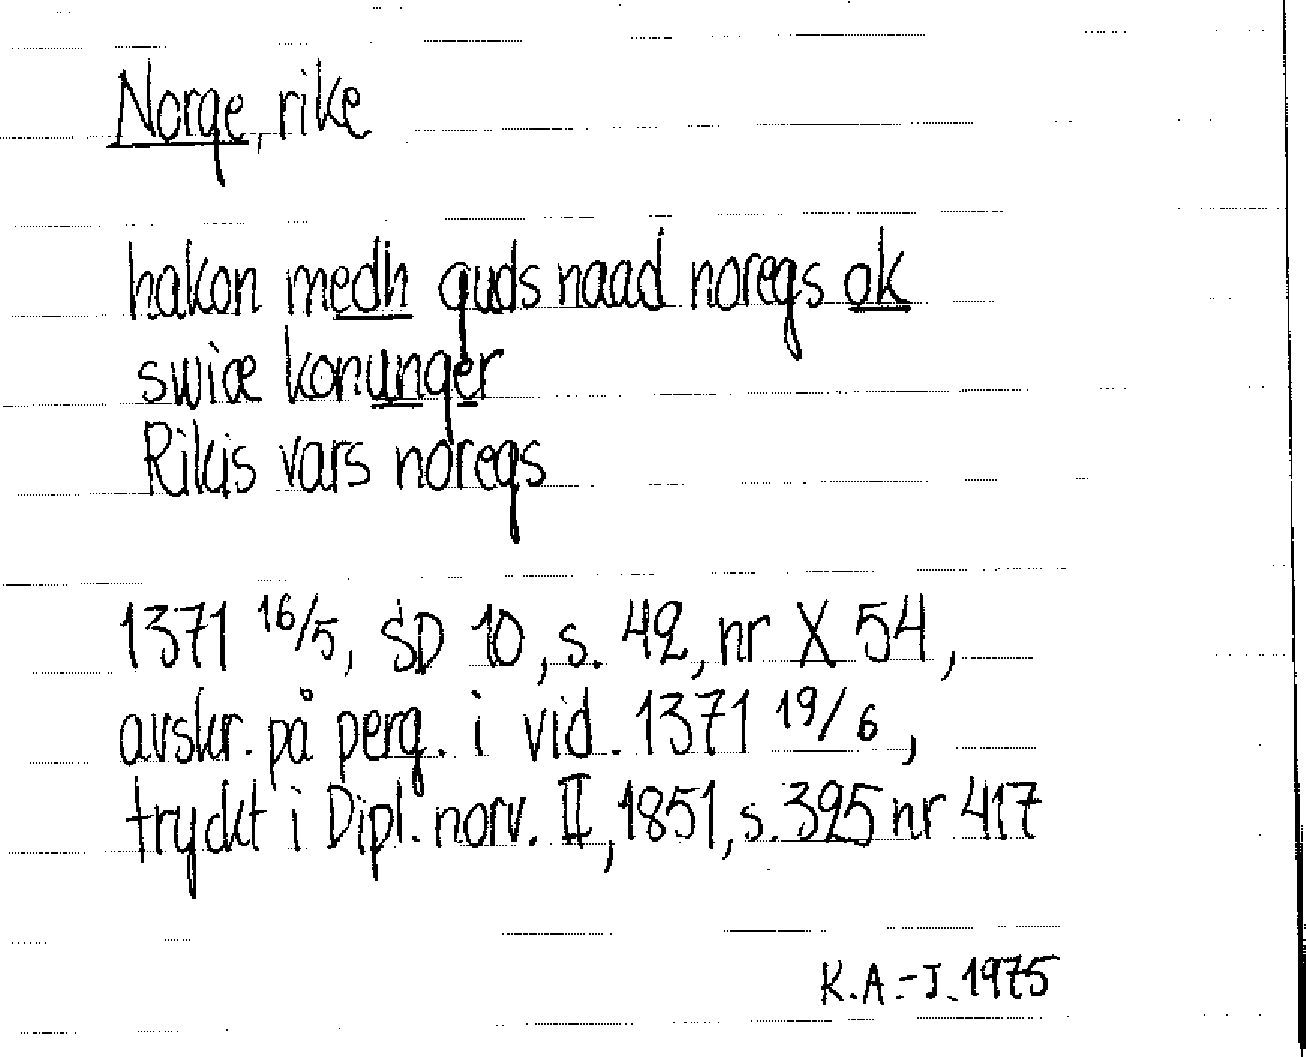 Norge, rike
hakon medh guds naad noregs ok
swiæ konunger
Rikis vars noregs
1371 16/5, SD 10, s. 42, nr X 54,
avskr. på perg. i vid. 1371 19/6,
tryckt i Dipl. norv. II, 1851, s. 325 nr 417
K.A.-J. 1975